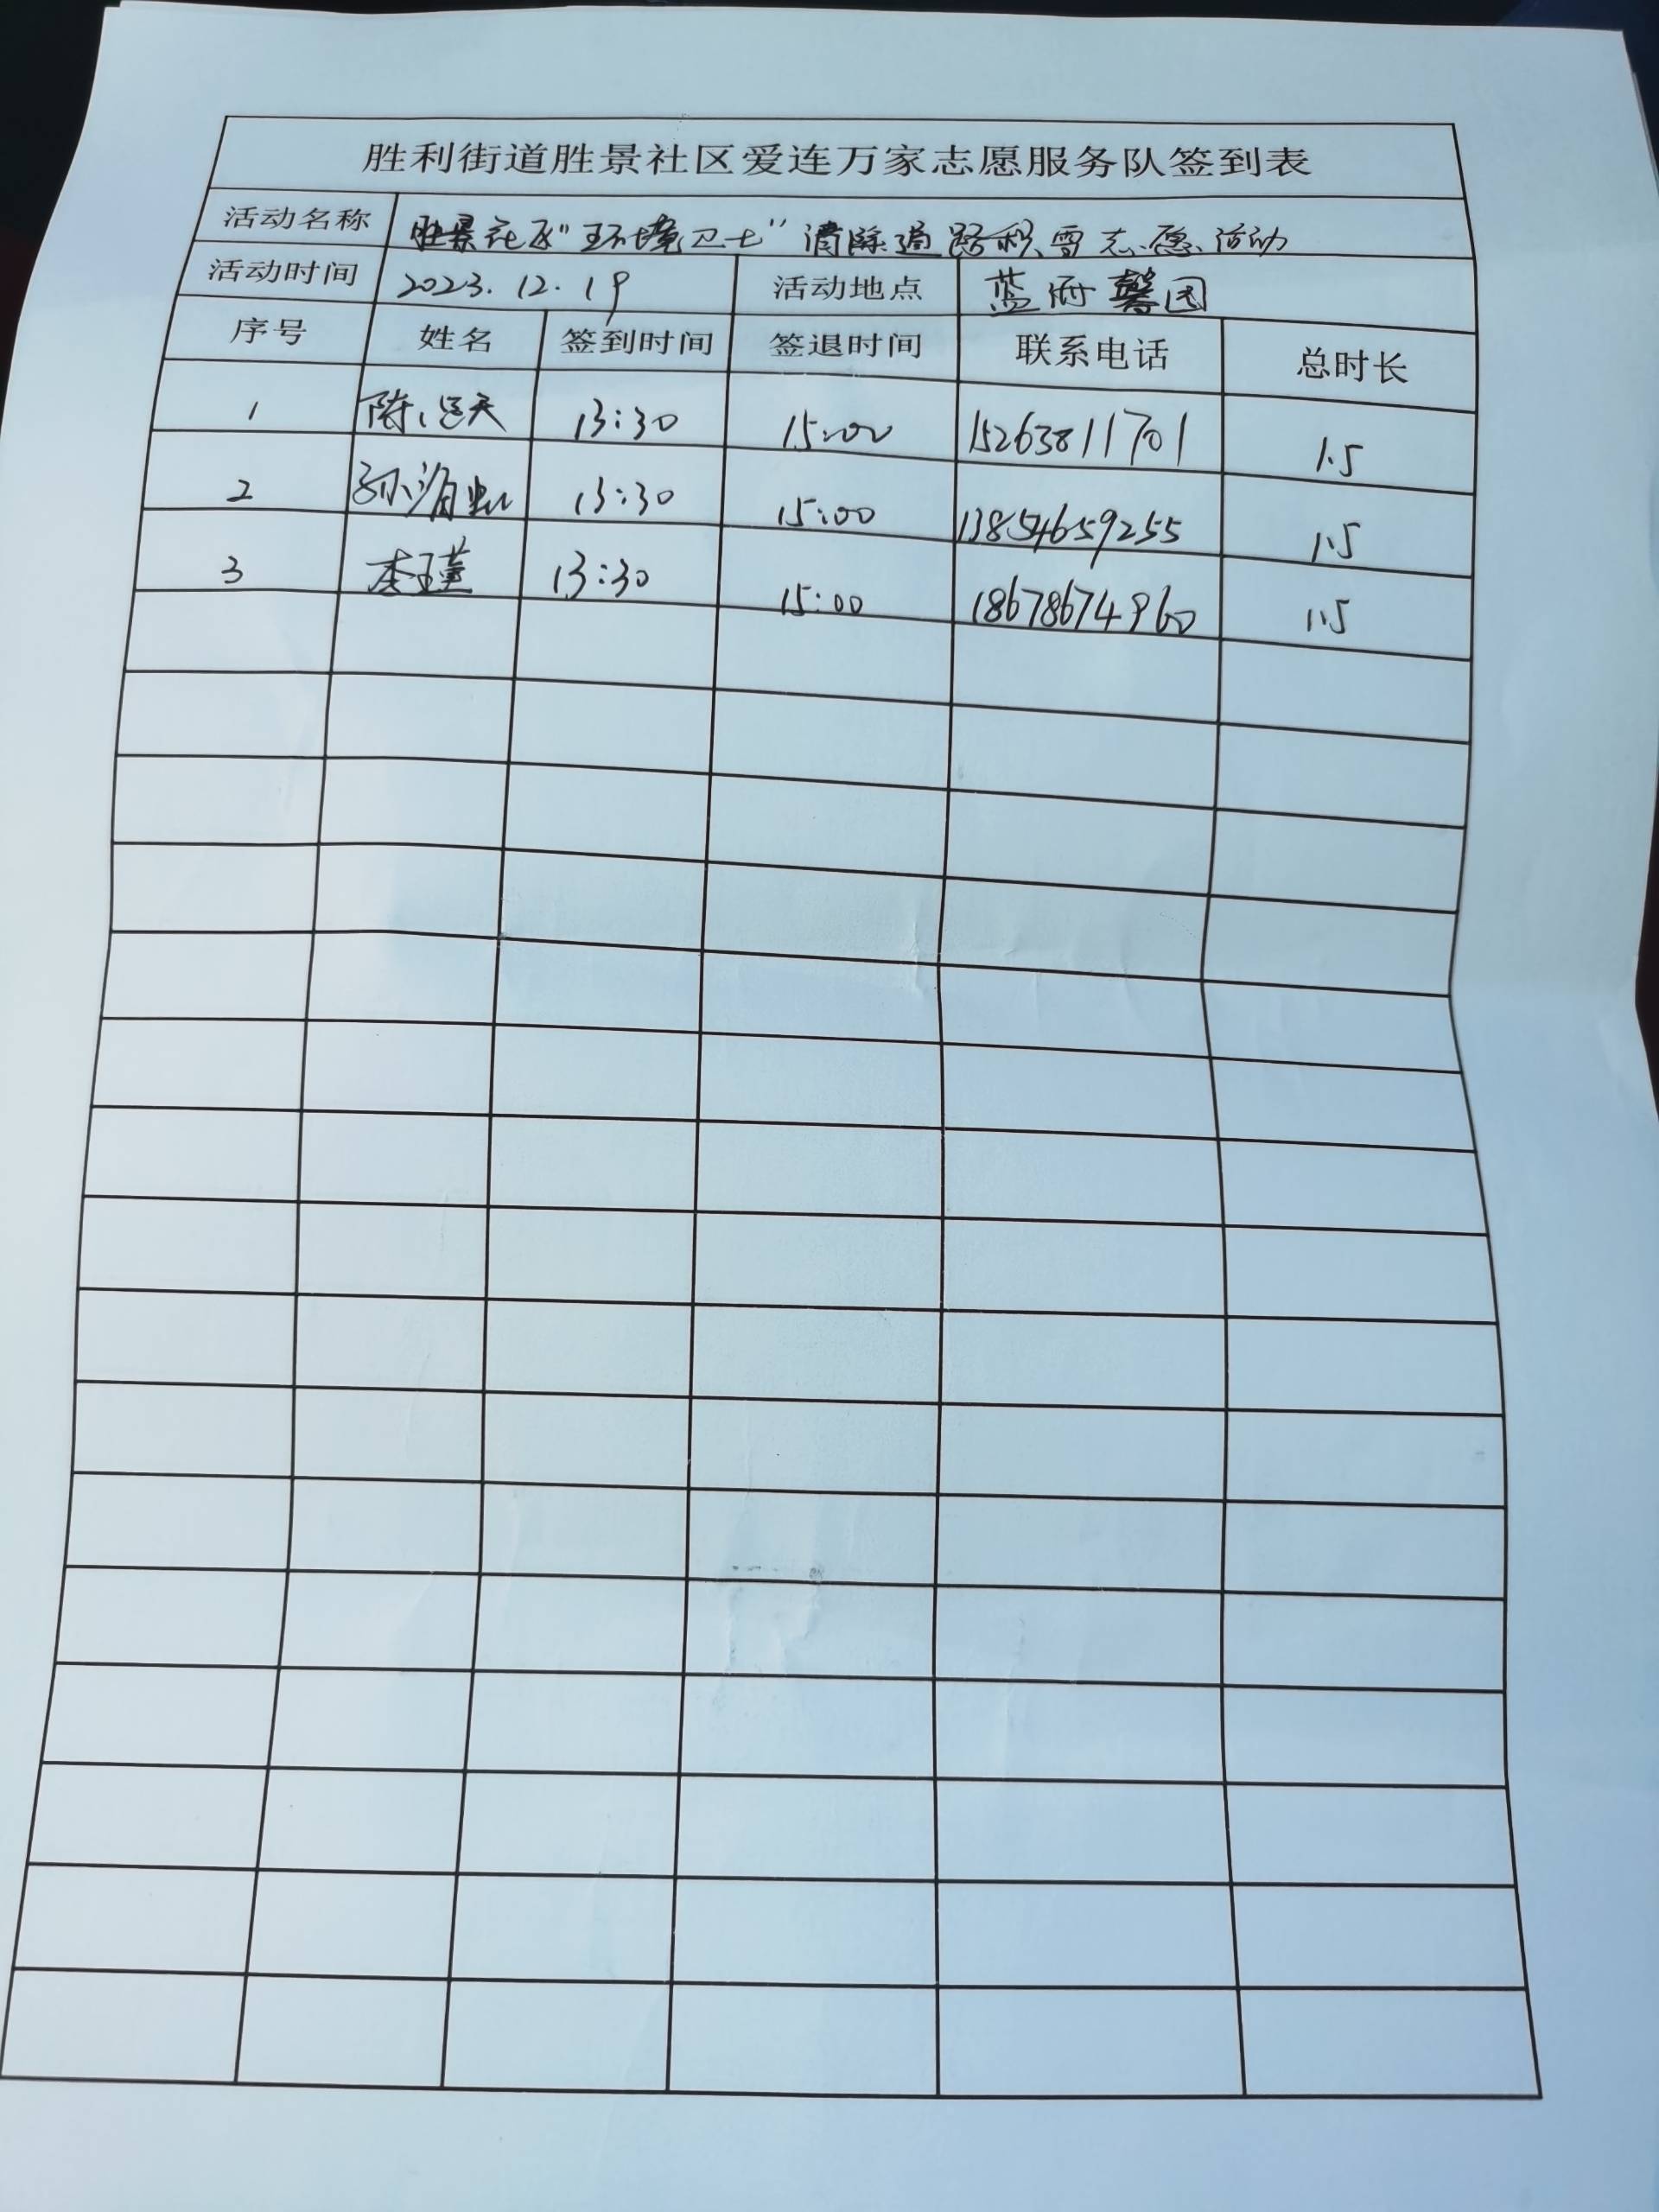 胜利街道胜景社区爱连万家志愿服务队签到表
活动名称 胜景社区“环境卫士”清除道路积雪志愿活动
活动时间 2023.12.19 活动地点 蓝雨馨园
序号 姓名 签到时间 签退时间 联系电话 总时长
1 陈 天 13:30 15:00 15263811701 1.5
2 孙 13:30 15:00 13854659255 1.5
3 李瑾 13:30 15:00 18678674960 1.5